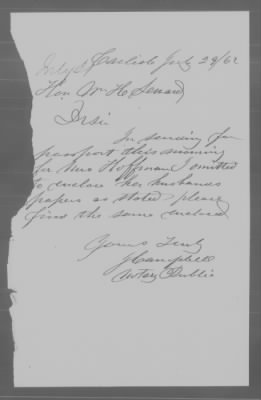 Carlisle July 29/62
Hon Wm H Seward
Sir
In sending for
passport this morning
for Mrs Hoffman I omitted
to enclose her husbands
papers as stated please
find the same enclosed
Yours Truly
J Campbell
Notary Public